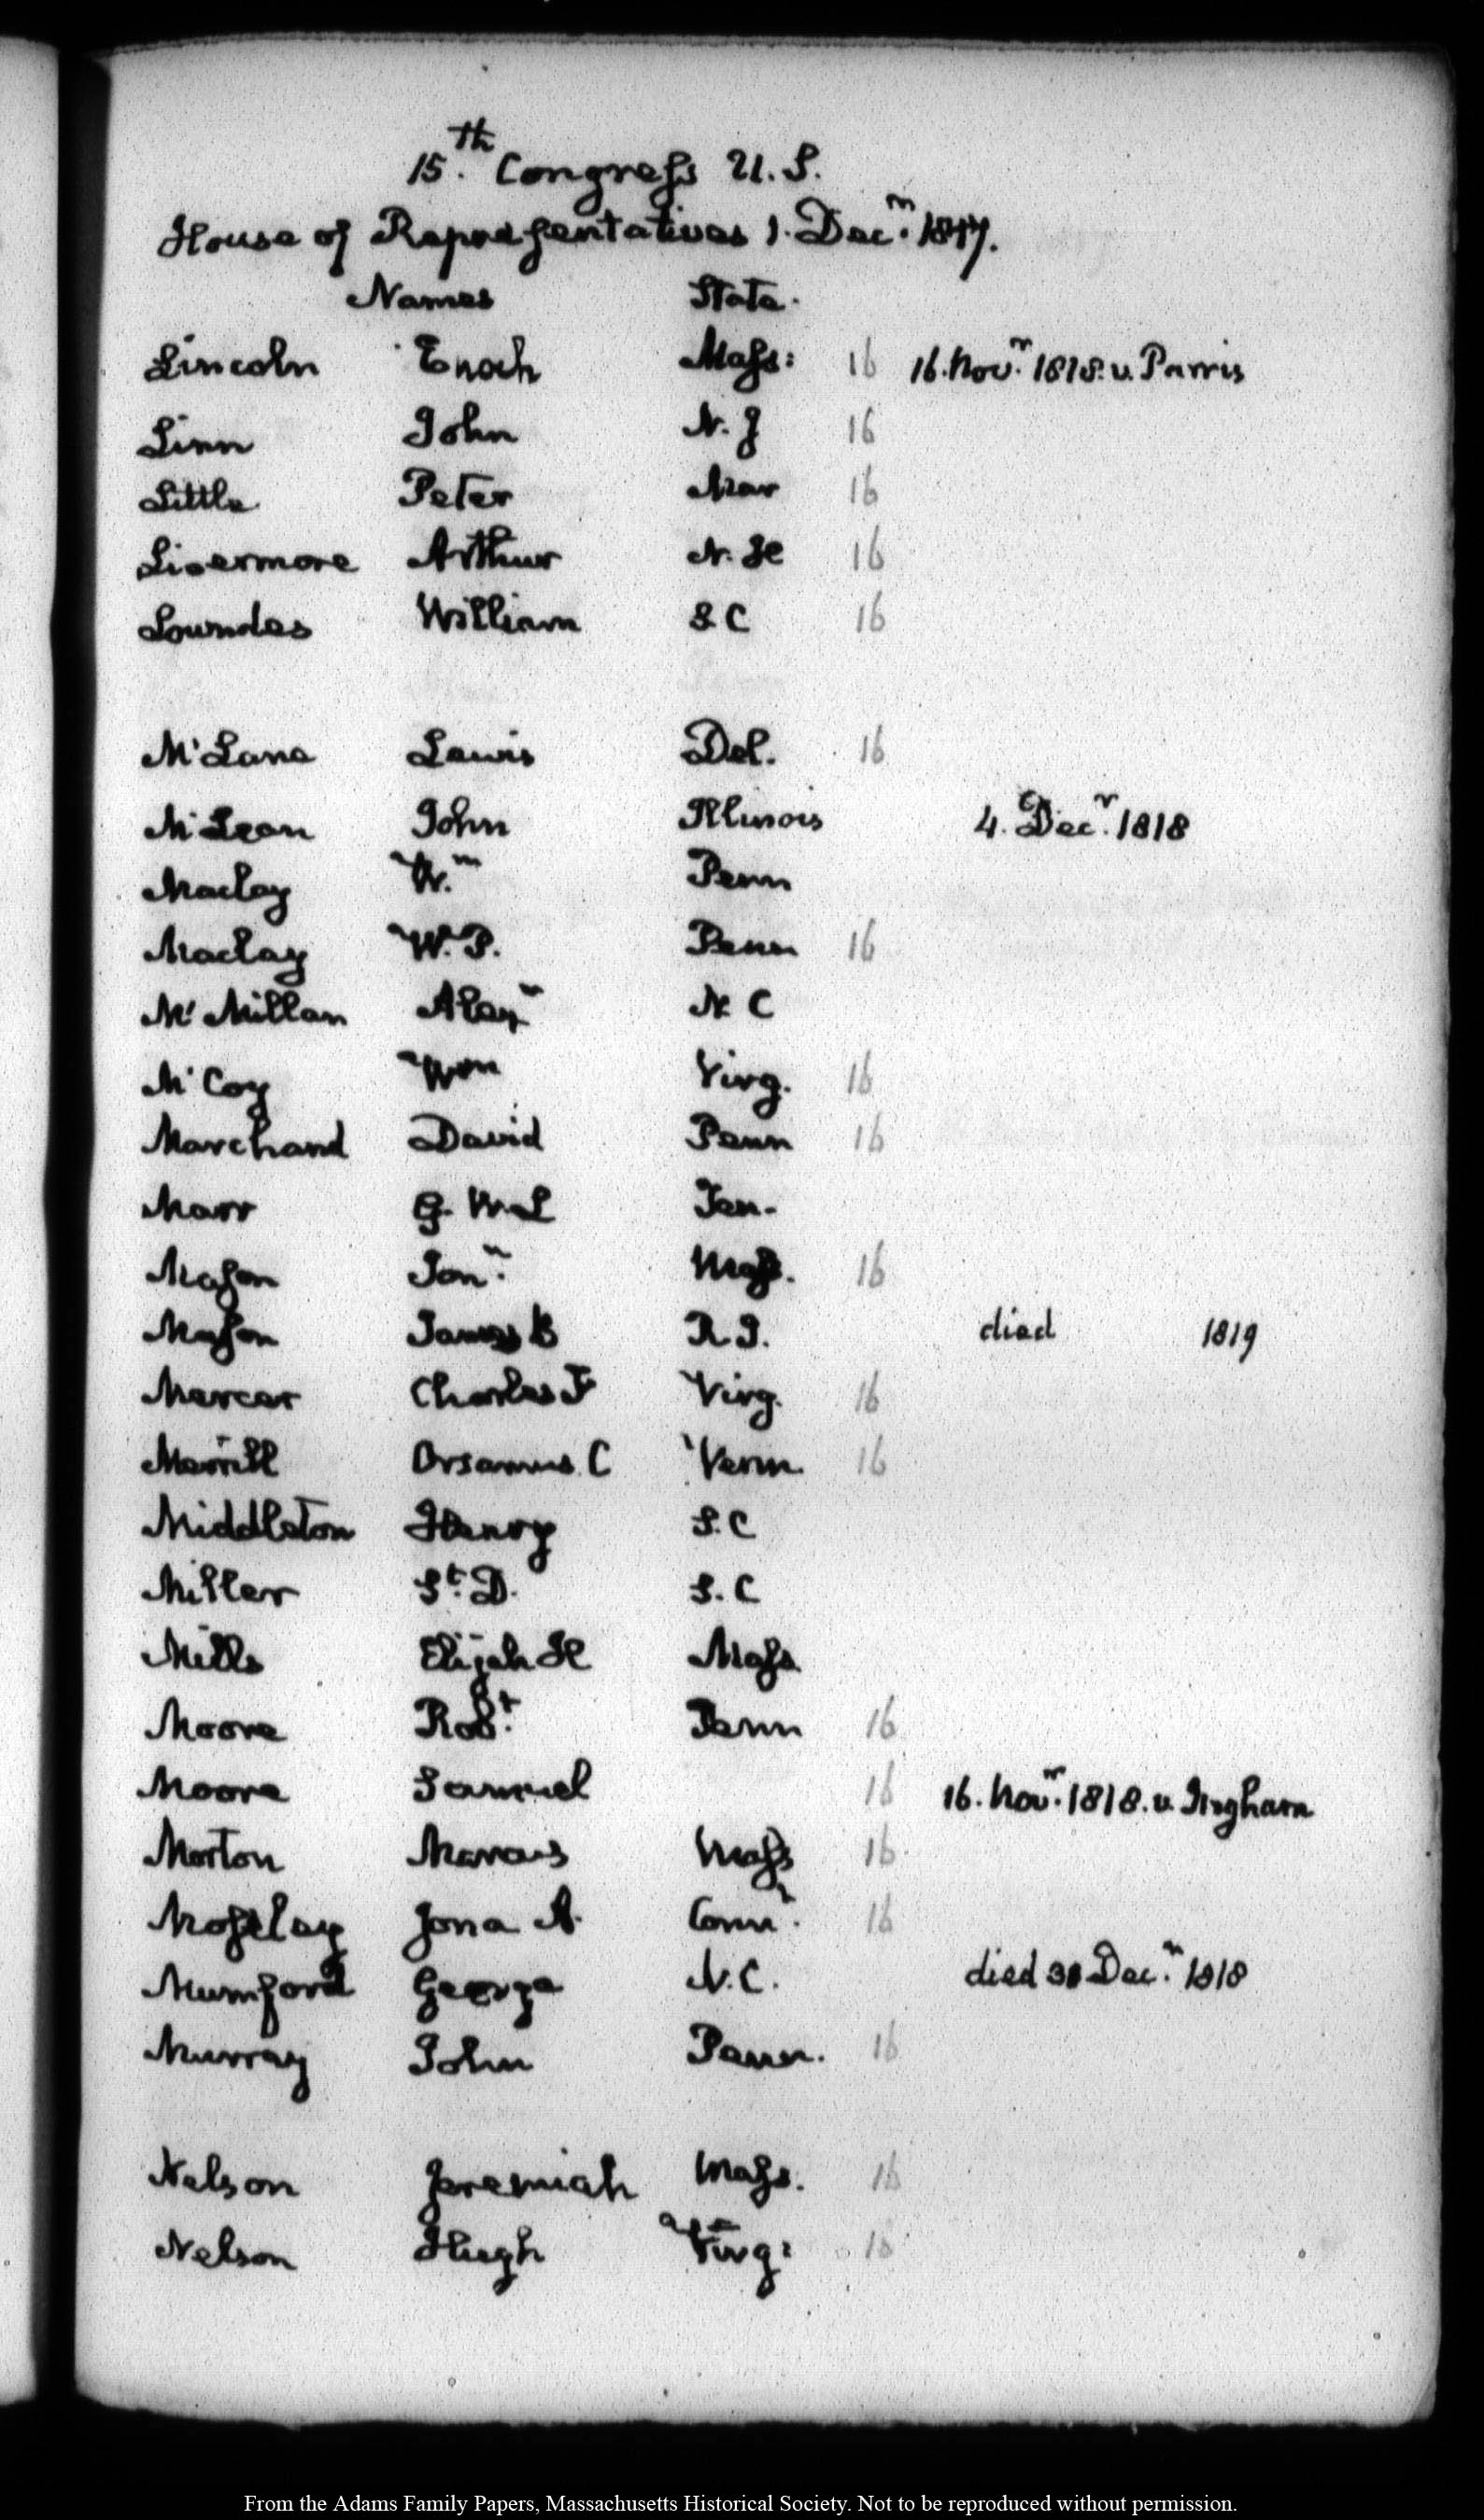 15.th Congress U.S.
House of Representatives 1. Dec.r 1817.
Names State.
Lincoln Enoch Mass: 16 16. Nov.r 1818. v. Parris
Linn John N. J 16
Little Peter Mar 16
Livermore Arthur N. H 16
Lowndes William S C 16
M'Lane Lewis Del. 16
M'Lean John Illinois 4. Dec.r 1818
Maclay W.m Penn
Maclay W. P. Penn 16
M'Millan Alexr N C
M'Coy Wm Virg. 16
Marchand David Penn 16
Marr G. W. L Ten.
Mason Jon.n Mass. 16
Mason James B R. I. died 1819
Mercer Charles F Virg. 16
Merrill Orsamus C Verm. 16
Middleton Henry S. C
Miller St. D. S. C
Mills Elijah H Mass
Moore Rob.t Penn 16
Moore Samuel 16 16. Nov.r 1818. v. Ingham
Morton Marcus Mass 16
Moseley Jona A. Conn.t 16
Mumford George N. C. died 31 Dec.r 1818
Murray John Penn. 16
Nelson Jeremiah Mass. 16
Nelson Hugh Virg: 16
From the Adams Family Papers, Massachusetts Historical Society. Not to be reproduced without permission.